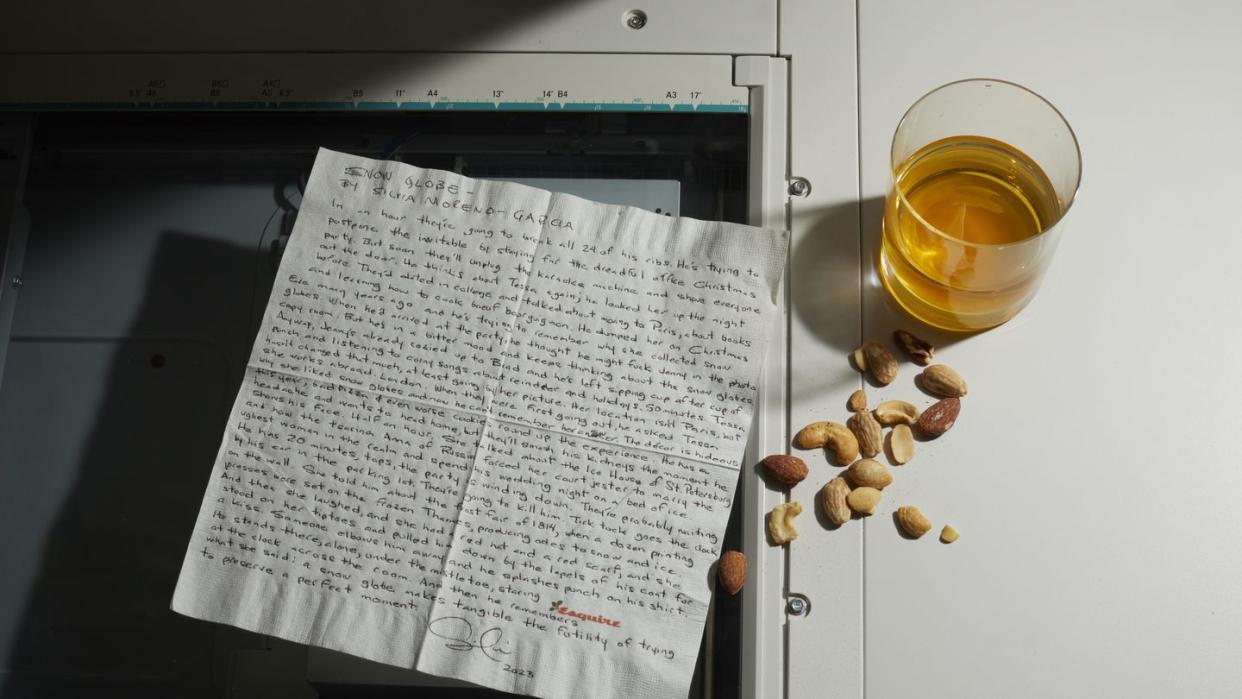 5.5" A5 B5 A4 A5 8.5" B5 11" A4 13" 14" B4 A3 17"
SNOW GLOBE -
BY SILVIA MORENO-GARCIA
In an hour they're going to break all 24 of his ribs. He's trying to
postpone the inevitable by staying for the dreadful office Christmas
party. But soon they'll unplug the karaoke machine and shove everyone
out the door. He thinks about Tessa again; he looked her up the night
before. They'd dated in college and talked about moving to Paris, about books
and learning how to cook boeuf bourguignon. He dumped her on Christmas
Eve many years ago and he's trying to remember why she collected snow
globes. When he'd arrived at the party, he thought he might fuck Jenny in the photo
copy room. But he's in a bitter mood and keeps thinking about the snow globes
Anyway, Jenny's already cozied up to Brad and he's left sipping cup after cup of
punch and listening to corny songs about reindeer and holidays. 50 minutes. Tessa
hasn't changed that much, at least going by her picture. Her location isn't Paris, but
she works abroad. London. When they were first going out, he asked Tessa
why she liked snow globes and now he can't remember her answer. The décor is hideous
this year, bad beer & even worse cookies round up the experience. He has a
headache and wants to head home, but they'll smash his kidneys the moment he
shows his face. Half an hour. She talked about the Ice House of St. Petersburg
and how the tsarina Anna of Russia forced her court jester to marry the
ugliest woman in the realm and spend his wedding night on a bed of ice.
He has 20 minutes, tops, the party is winding down. They're probably waiting
by his car in the parking lot. They're going to kill him. Tick tock goes the clock
on the wall. She told him about the frost fair of 1814, when a dozen printing
presses were set on the frozen Thames, producing odes to snow and ice.
And then she laughed, and she had a red hat and a red scarf, and she
stood on her tiptoes and pulled him down by the lapels of his coat for
a kiss. Someone elbows him away and he splashes punch on his shirt.
He stands there, alone, under the mistletoe, staring
at the clock across the room. And then he remembers
what she said: a snow globe makes tangible the futility of trying
to preserve a perfect moment.
Esquire
2023